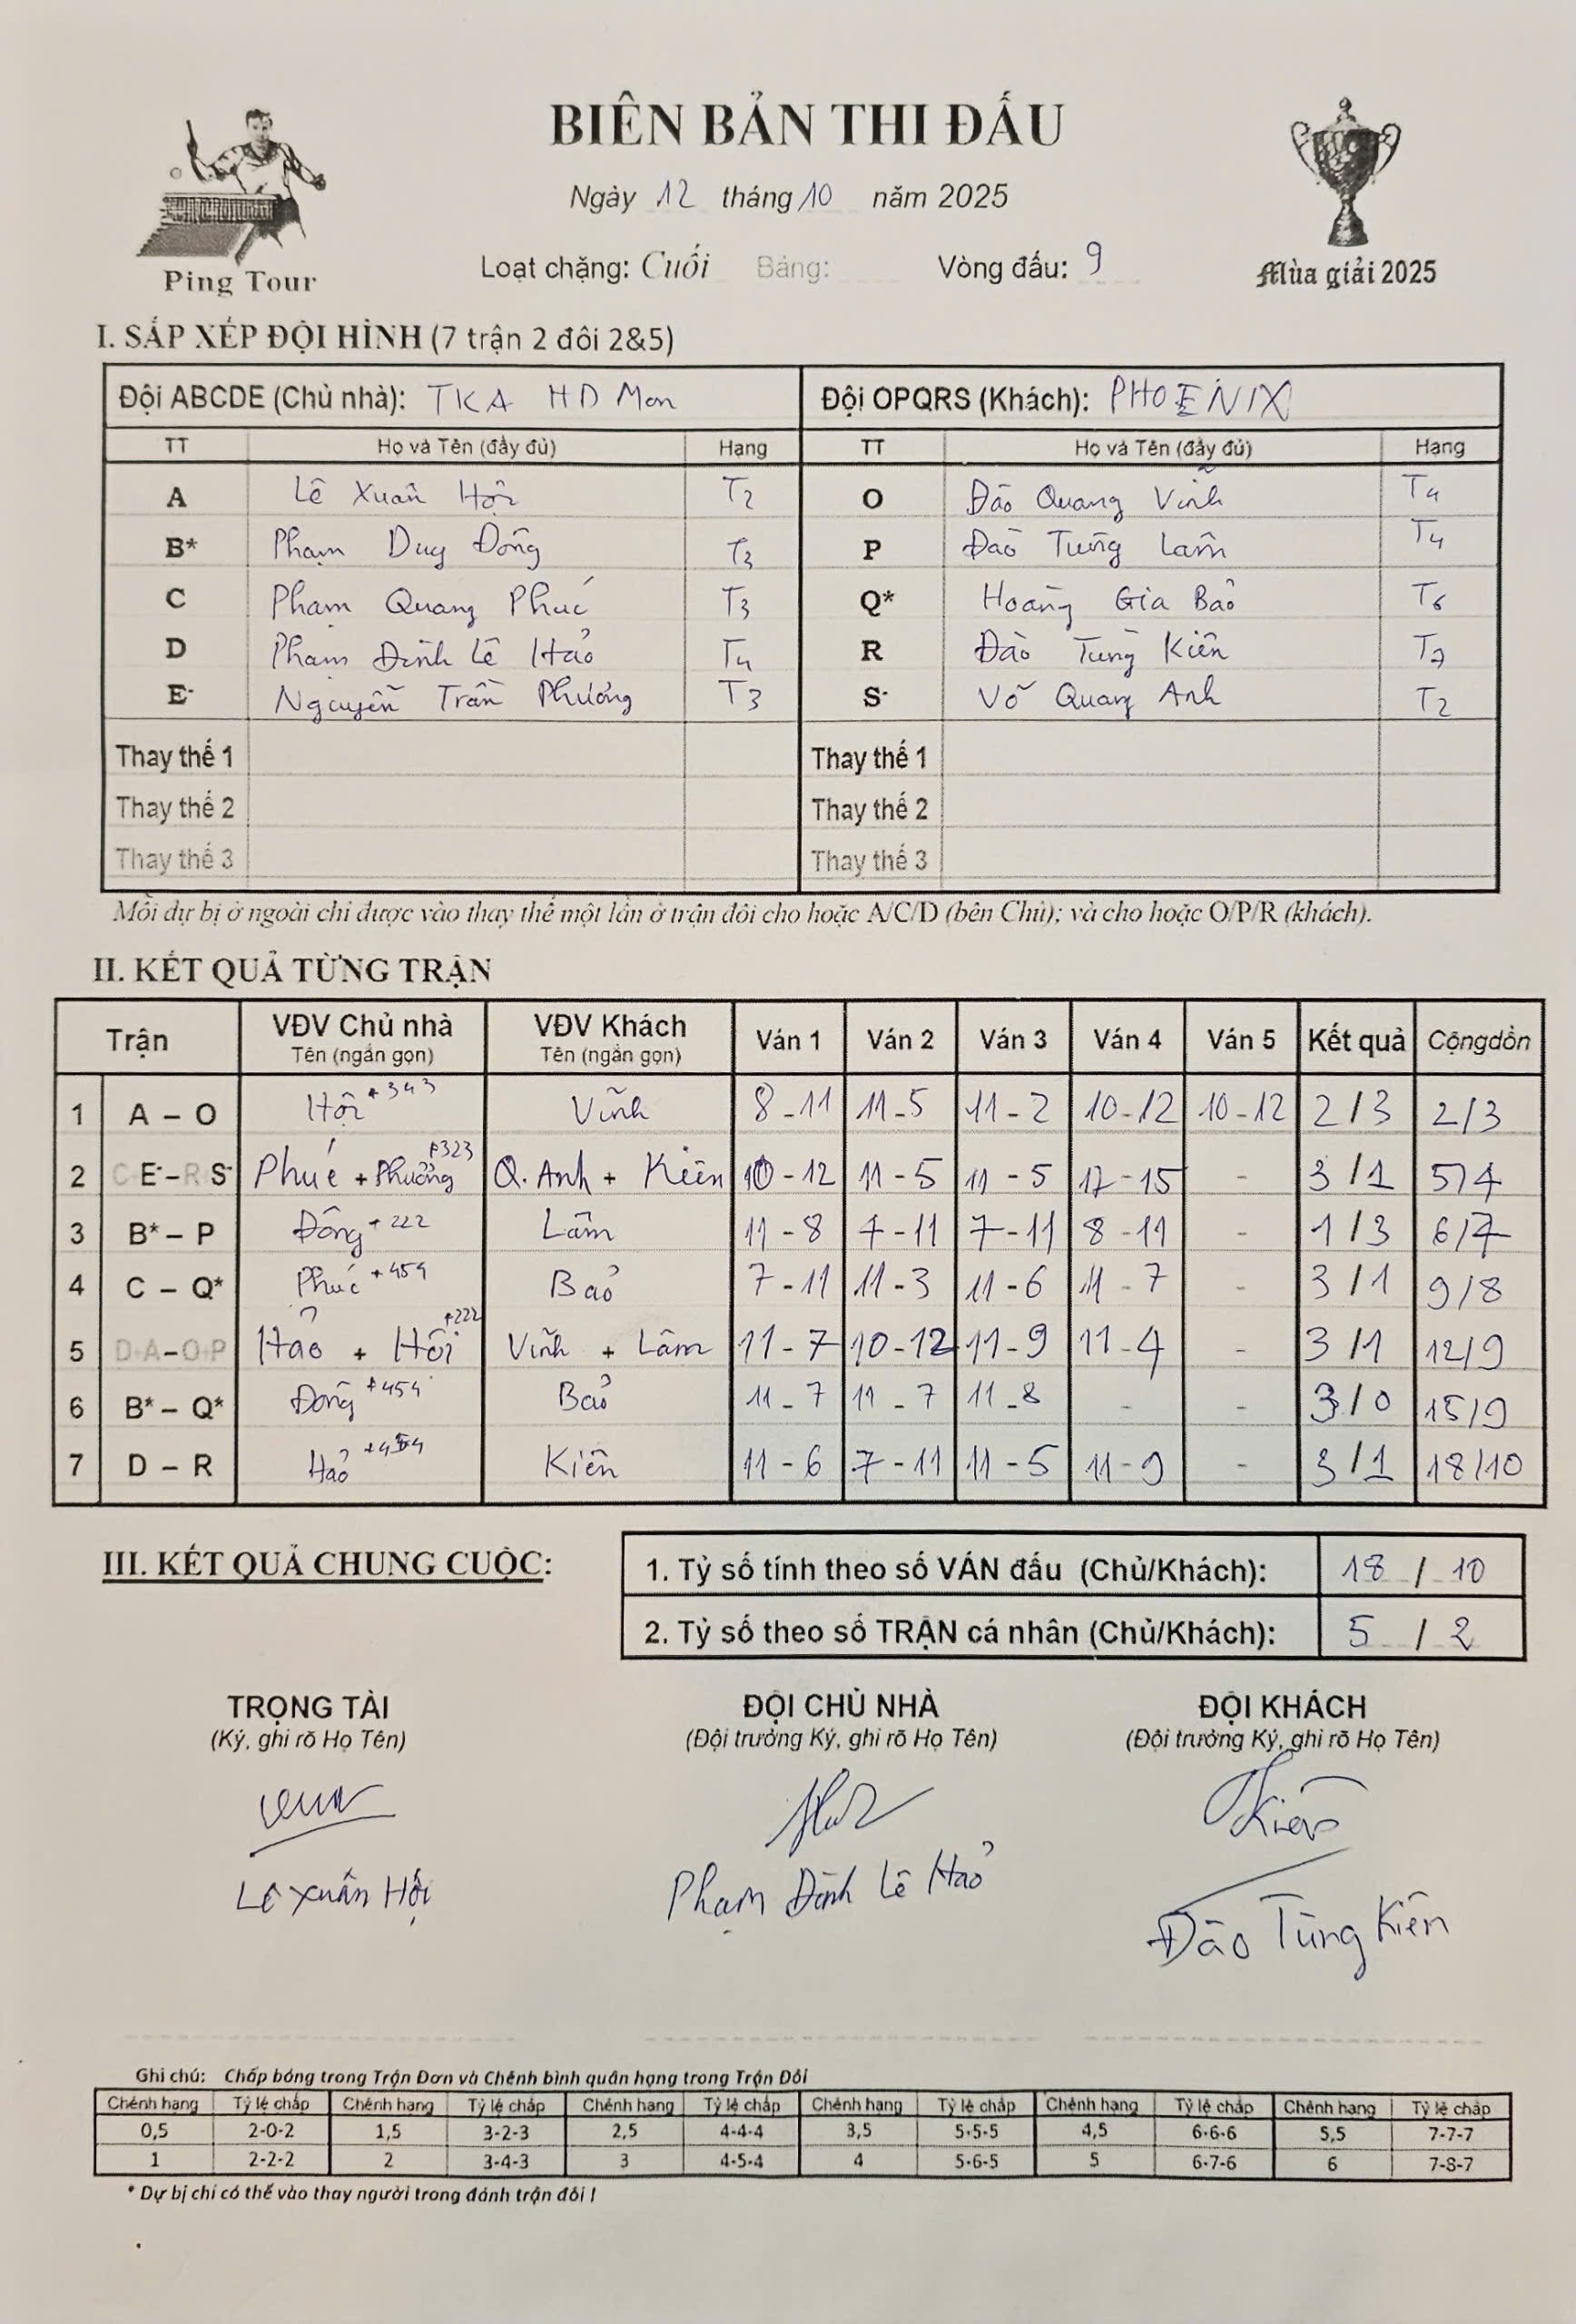 BIÊN BẢN THI ĐẤU
Ngày 12 tháng 10 năm 2025
Loạt chặng: Cuối Bảng: Vòng đấu: 9
Ping Tour
Mùa giải 2025
I. SẮP XẾP ĐỘI HÌNH (7 trận 2 đôi 2&5)
Đội ABCDE (Chủ nhà): TKA HD Mon Đội OPQRS (Khách): PHOENIX
TT Họ và Tên (đầy đủ) Hạng TT Họ và Tên (đầy đủ) Hạng
A Lê Xuân Hội T2 O Đào Quang Vinh T4
B* Phạm Duy Đông T3 P Đào Tùng Lâm T4
C Phạm Quang Phúc T3 Q* Hoàng Gia Bảo T6
D Phạm Đình Lê Hảo T4 R Đào Tùng Kiên T7
E- Nguyễn Trần Phương T3 S- Võ Quang Anh T2
Thay thế 1 Thay thế 1
Thay thế 2 Thay thế 2
Thay thế 3 Thay thế 3
Mỗi dự bị ở ngoài chỉ được vào thay thế một lần ở trận đôi cho hoặc A/C/D (bên Chủ); và cho hoặc O/P/R (khách).
II. KẾT QUẢ TỪNG TRẬN
Trận VĐV Chủ nhà VĐV Khách Ván 1 Ván 2 Ván 3 Ván 4 Ván 5 Kết quả Cộngdồn
Tên (ngắn gọn) Tên (ngắn gọn)
1 A – O Hội +343 Vĩnh 8-11 11-5 11-2 10-12 10-12 2/3 2/3
2 C E- – R S- Phúc + Phương +323 Q. Anh + Kiên 10-12 11-5 11-5 17-15 - 3/1 5/4
3 B* – P Đông +222 Lâm 11-8 7-11 7-11 8-11 - 1/3 6/7
4 C – Q* Phúc +454 Bảo 7-11 11-3 11-6 11-7 - 3/1 9/8
5 D+A–O+P Hảo + Hội +222 Vĩnh + Lâm 11-7 10-12 11-9 11-4 - 3/1 12/9
6 B* – Q* Đông +454 Bảo 11-7 11-7 11-8 - - 3/0 15/9
7 D – R Hảo +454 Kiên 11-6 7-11 11-5 11-9 - 3/1 18/10
III. KẾT QUẢ CHUNG CUỘC:
1. Tỷ số tính theo số VÁN đấu (Chủ/Khách): 18 / 10
2. Tỷ số theo số TRẬN cá nhân (Chủ/Khách): 5 / 2
TRỌNG TÀI ĐỘI CHỦ NHÀ ĐỘI KHÁCH
(Ký, ghi rõ Họ Tên) (Đội trưởng Ký, ghi rõ Họ Tên) (Đội trưởng Ký, ghi rõ Họ Tên)
Kiên
Lê Xuân Hội Phạm Đình Lê Hảo Đào Tùng Kiên
Ghi chú: Chấp bóng trong Trận Đơn và Chênh bình quân hạng trong Trận Đôi
Chênh hạng Tỷ lệ chấp Chênh hạng Tỷ lệ chấp Chênh hạng Tỷ lệ chấp Chênh hạng Tỷ lệ chấp Chênh hạng Tỷ lệ chấp Chênh hạng Tỷ lệ chấp
0,5 2-0-2 1,5 3-2-3 2,5 4-4-4 3,5 5-5-5 4,5 6-6-6 5,5 7-7-7
1 2-2-2 2 3-4-3 3 4-5-4 4 5-6-5 5 6-7-6 6 7-8-7
* Dự bị chỉ có thể vào thay người trong đánh trận đôi !